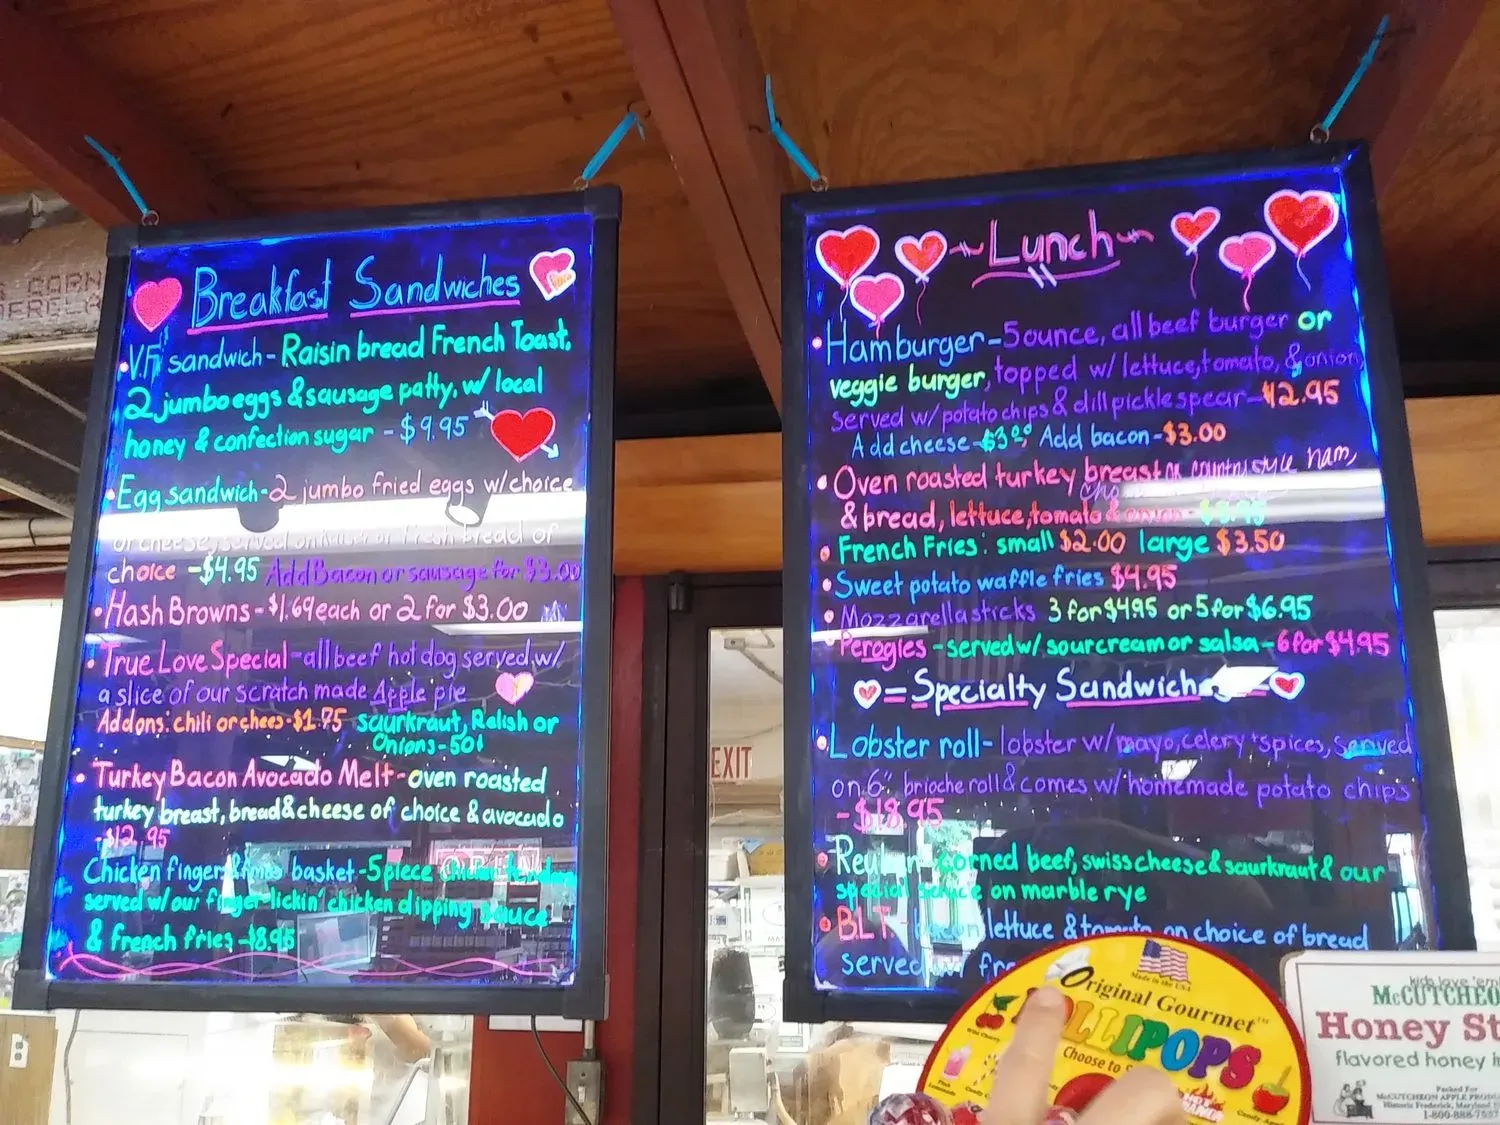 Breakfast Sandwiches
V.F. sandwich - Raisin bread French Toast,
2 jumbo eggs & sausage patty, w/ local
honey & confection sugar - $9.95
Egg sandwich - 2 jumbo fried eggs w/ choice
of cheese, served on or fresh bread of
choice - $4.95 Add Bacon or sausage for $3.00
Hash Browns - $1.69 each or 2 for $3.00
True Love Special - all beef hot dog served w/
a slice of our scratch made Apple pie
Addons: chili or chees - $1.75 saurkraut, Relish or
Onions - 50¢
Turkey Bacon Avocado Melt - oven roasted
turkey breast, bread & cheese of choice & avocado
- $12.95
Chicken finger & fries basket - 5 piece
served w/ our finger-lickin' chicken dipping sauce
& french fries - $8.95
~ Lunch ~
Hamburger - 5 ounce, all beef burger or
veggie burger, topped w/ lettuce, tomato, & onion,
served w/ potato chips & dill pickle spear - $12.95
Add cheese - $3.00 Add bacon - $3.00
Oven roasted turkey breast or country style ham,
& bread, lettuce, tomato & onion
French Fries: small $2.00 large $3.50
Sweet potato waffle fries $4.95
Mozzarella sticks 3 for $4.95 or 5 for $6.95
Perogies - served w/ sour cream or salsa - 6 for $4.95
= Specialty Sandwich
Lobster roll - lobster w/ mayo, celery + spices, served
on 6" brioche roll & comes w/ homemade potato chips
- $18.95
Reuben - corned beef, swiss cheese & saurkraut & our
special sauce on marble rye
B.L.T. bacon lettuce & tomato on choice of bread
served w/
EXIT
Made in the USA
Original Gourmet™
LOLLIPOPS
Choose to
Wild Cherry
Pink Lemonade
kids love 'em
McCUTCHEO
Honey St
flavored honey i
Packed For
McCUTCHEON APPLE PRODU
Historic Frederick, Maryland
1-800-888-7537